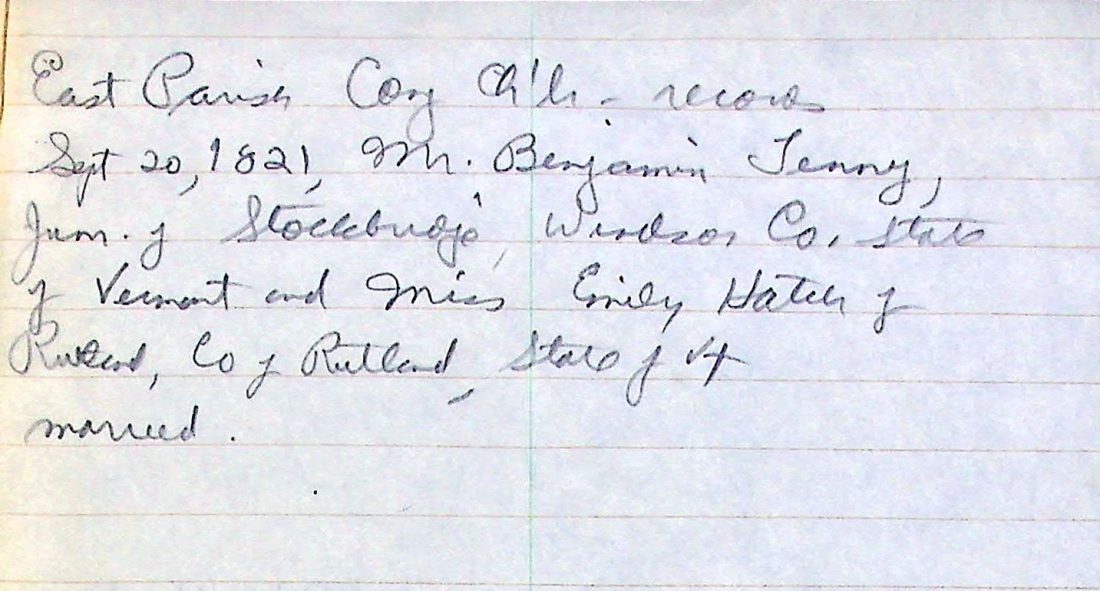 East Parish Cong Ch'h - records
Sept 20, 1821, Mr. Benjamin Tenny,
Jun. of Stockbridge, Windsor Co. State
of Vermont and Miss Emily Hatch of
Rutland, Co of Rutland, State of Vt
married.